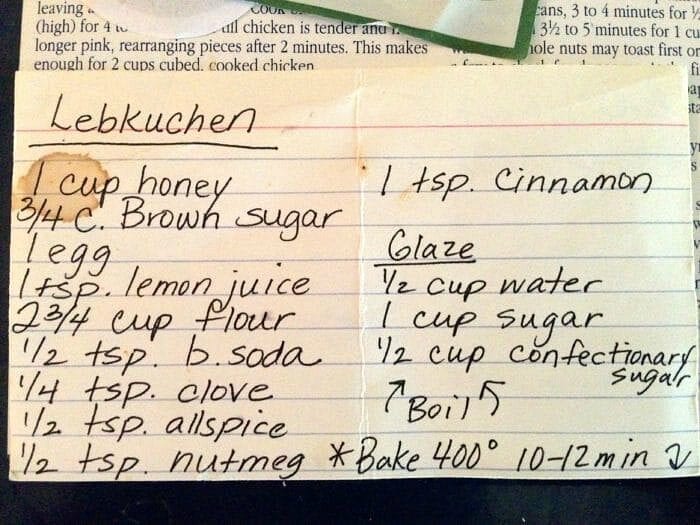 leaving
(high) for 4
chicken is tender and
longer pink, rearranging pieces after 2 minutes. This makes
enough for 2 cups cubed, cooked chicken
cans, 3 to 4 minutes for
3½ to 5 minutes for 1 cu
nuts may toast first on
Lebkuchen
1 cup honey
3/4 C. Brown sugar
1 egg
1 tsp. lemon juice
2 3/4 cup flour
1/2 tsp. b. soda
1/4 tsp. clove
1/2 tsp. allspice
1/2 tsp. nutmeg
1 tsp. Cinnamon
Glaze
1/2 cup water
1 cup sugar
1/2 cup confectionary
sugar
↗ Boil ↖
*Bake 400° 10-12 min ↓